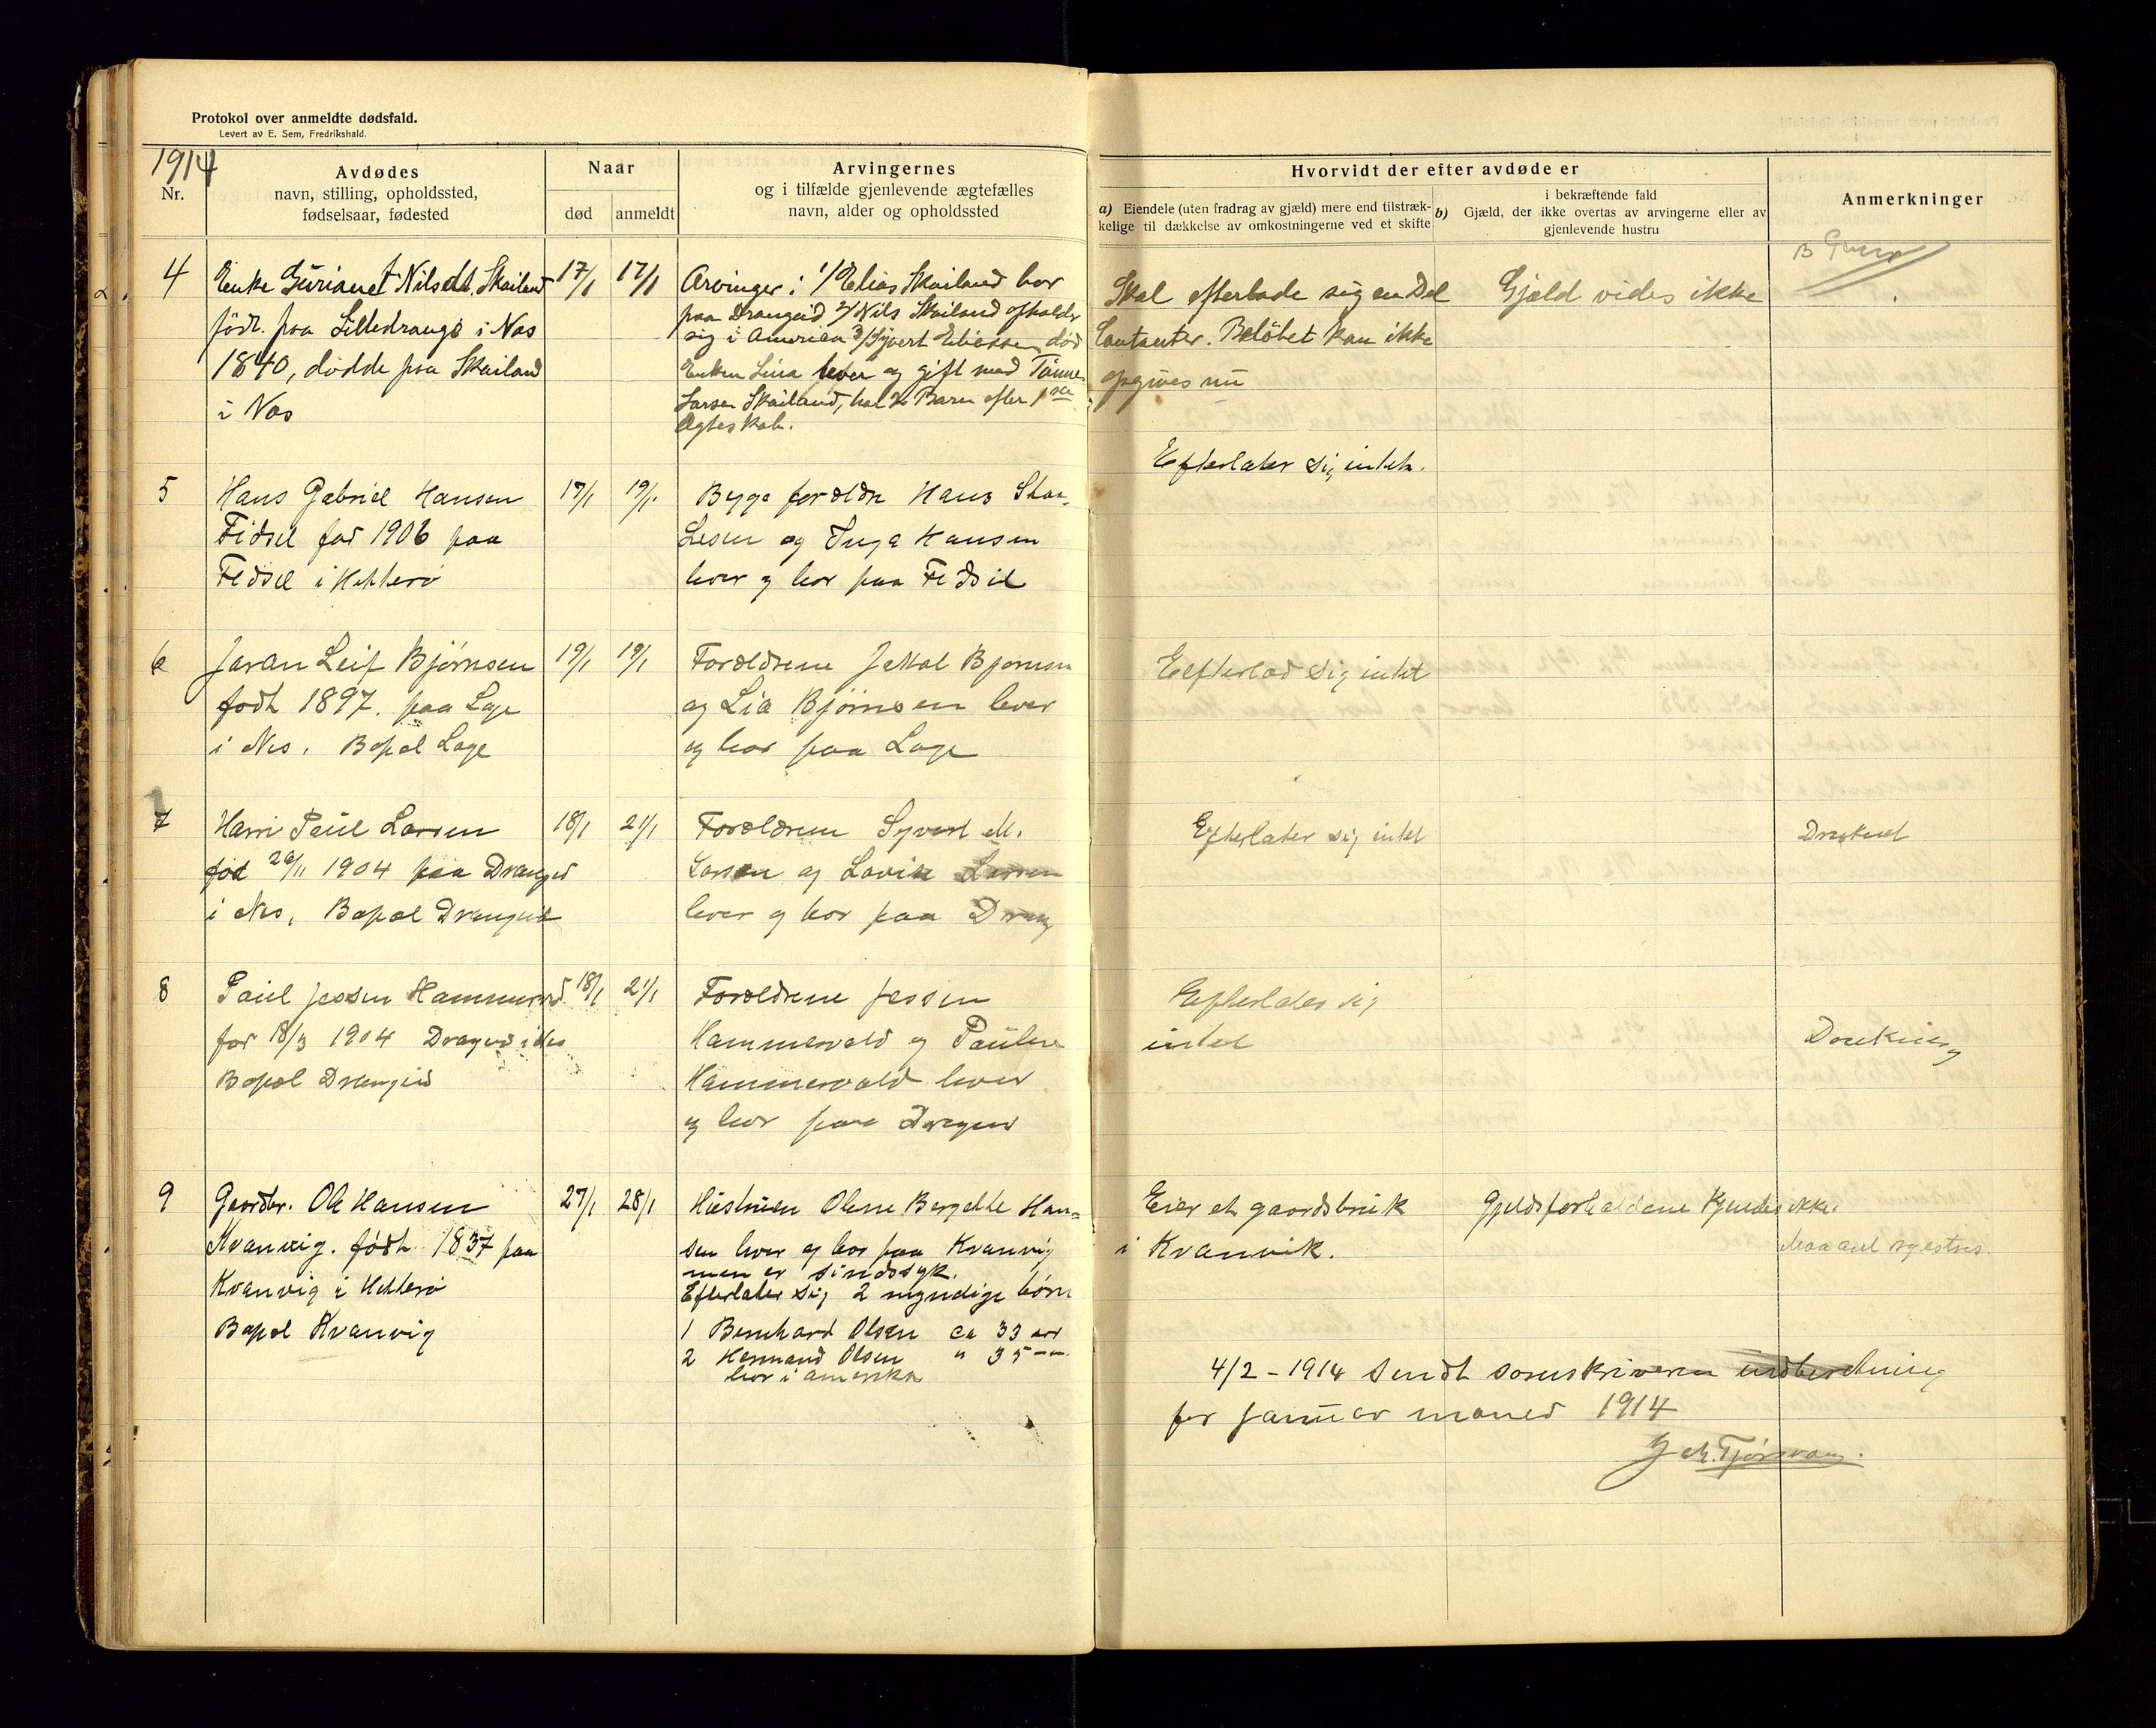 Protokol over anmeldte dødsfald.
Levert av E. Sem, Fredrikshald.
1914
Nr.
Avdødes
navn, stilling, opholdssted,
fødselsaar, fødested
Naar
død
anmeldt
Arvingernes
og i tilfælde gjenlevende ægtefælles
navn, alder og opholdssted
Hvorvidt der efter avdøde er
a) Eiendele (uten fradrag av gjæld) mere end tilstræk-
kelige til dækkelse av omkostningerne ved et skifte
b)
i bekræftende fald
Gjæld, der ikke overtas av arvingerne eller av
gjenlevende hustru
Anmerkninger
4
Enke Nilsdt. Skailand
født. paa Lilledrange i Nas
1840, dødde paa Skailand
i Nas
17/1
17/1
Arvinger: 1/ Elias Skailand bor
paa Drangeid 2/ Nils Skailand opholder
sig i Amerika 3/ Syvert Eliassen død
Enken Lina lever og gift med Tønnes
Larsen Skailand, har 2 Barn efter 1ste
Ægteskab.
Skal efterlade sig en Del
Contanter. Beløbet kan ikke
opgives nu
Gjæld vides ikke
5
Hans Gabriel Hansen
Fidsel fød 1906 paa
Fedsel i Hitterø
17/1
19/1
Begge forældre Hans
og Inga Hansen
lever og bor paa Fedsel
Efterlater sig intet.
6
Javan Leif Bjørnsen
født 1897. paa Loge
i Nes. Bopæl Loge
19/1
19/1
Forældrene Bjørnsen
og Lia Bjørnsen lever
og bor paa Loge
Eefterlod sig intet
7
Harri Paul Larsen
fød 1904 paa Drangeid
i Nes, Bopæl Drangeid
18/1
21/1
Forældrene Syvert M.
Larsen og Lovise Larsen
lever og bor paa Drang
Efterlater sig intet
Druknet
8
Paul Jessen Hammervold
fød 18/3 1904 Drangeid i Nes
Bopæl Drangeid
18/1
21/1
Forældrene Jessen
Hammervold og Pauline
Hammervold lever
og bor paa Drangeid
Efterlater sig
intet
Drukning
9
Gaardbr. Ole Hansen
Kvanvig. født 1837 paa
Kvanvig i Hitterø
Bopæl Kvanvig
27/1
28/1
Hustruen Olene Bergitte Han=
sen lever og bor paa Kvanvig
men er sindssyk.
Efterlater sig 2 myndige børn
1 Bernhard Olsen ca 33 aar
2 Hermand Olsen " 35 —"—
bor i amerika
Eier et gaardsbruk
i Kvanvik.
Gjeldsforholdene kjendes ikke.
4/2 - 1914 Sendt sorenskriveren indberetning
for januar maaned 1914